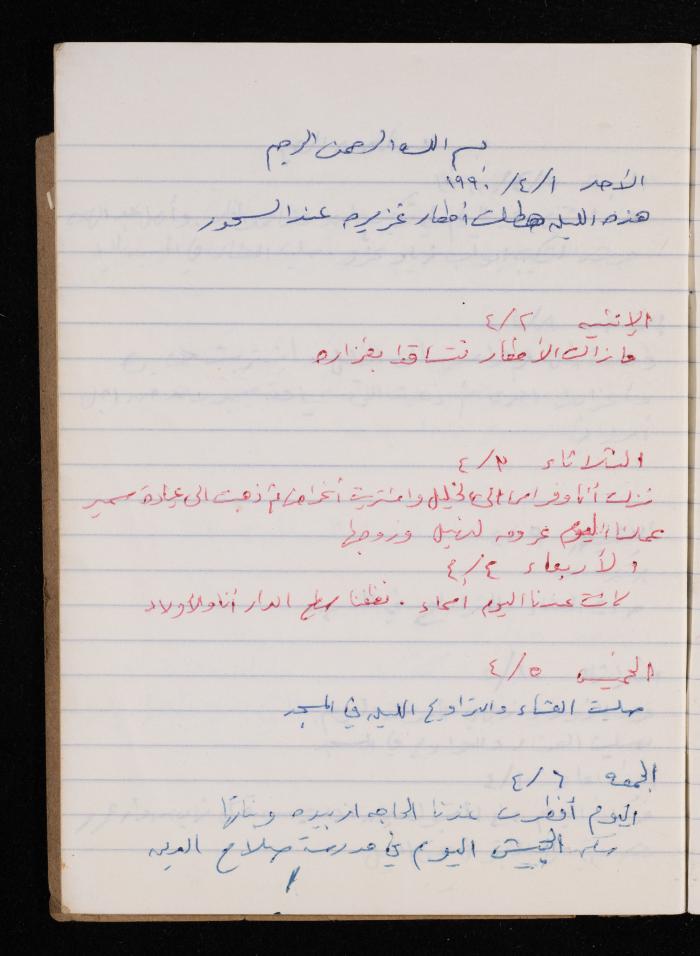 بسم الله الرحمن الرحيم
الأحد ١/٤/١٩٩٠
هذه الليله هطلت أمطار غزيره عند السحور
الإثنين ٤/٢
ما زالت الأمطار تتساقط بغزاره
الثلاثاء ٤/٣
نزلت أنا وفراس الى الخليل واشتريت أغراض ثم ذهبت الى عيادة سمير
عملنا اليوم عزومه لنهيل وزوجها
الأربعاء ٤/٤
كانت عندنا اليوم أسماء . نظفنا سطح الدار أنا والأولاد
الخميس ٤/٥
صليت العشاء والتراويح الليله في المسجد
الجمعه ٤/٦
اليوم أفطرت عندنا الحاجه زبيده وبناتها
الجيش اليوم في مدرسة صلاح الدين